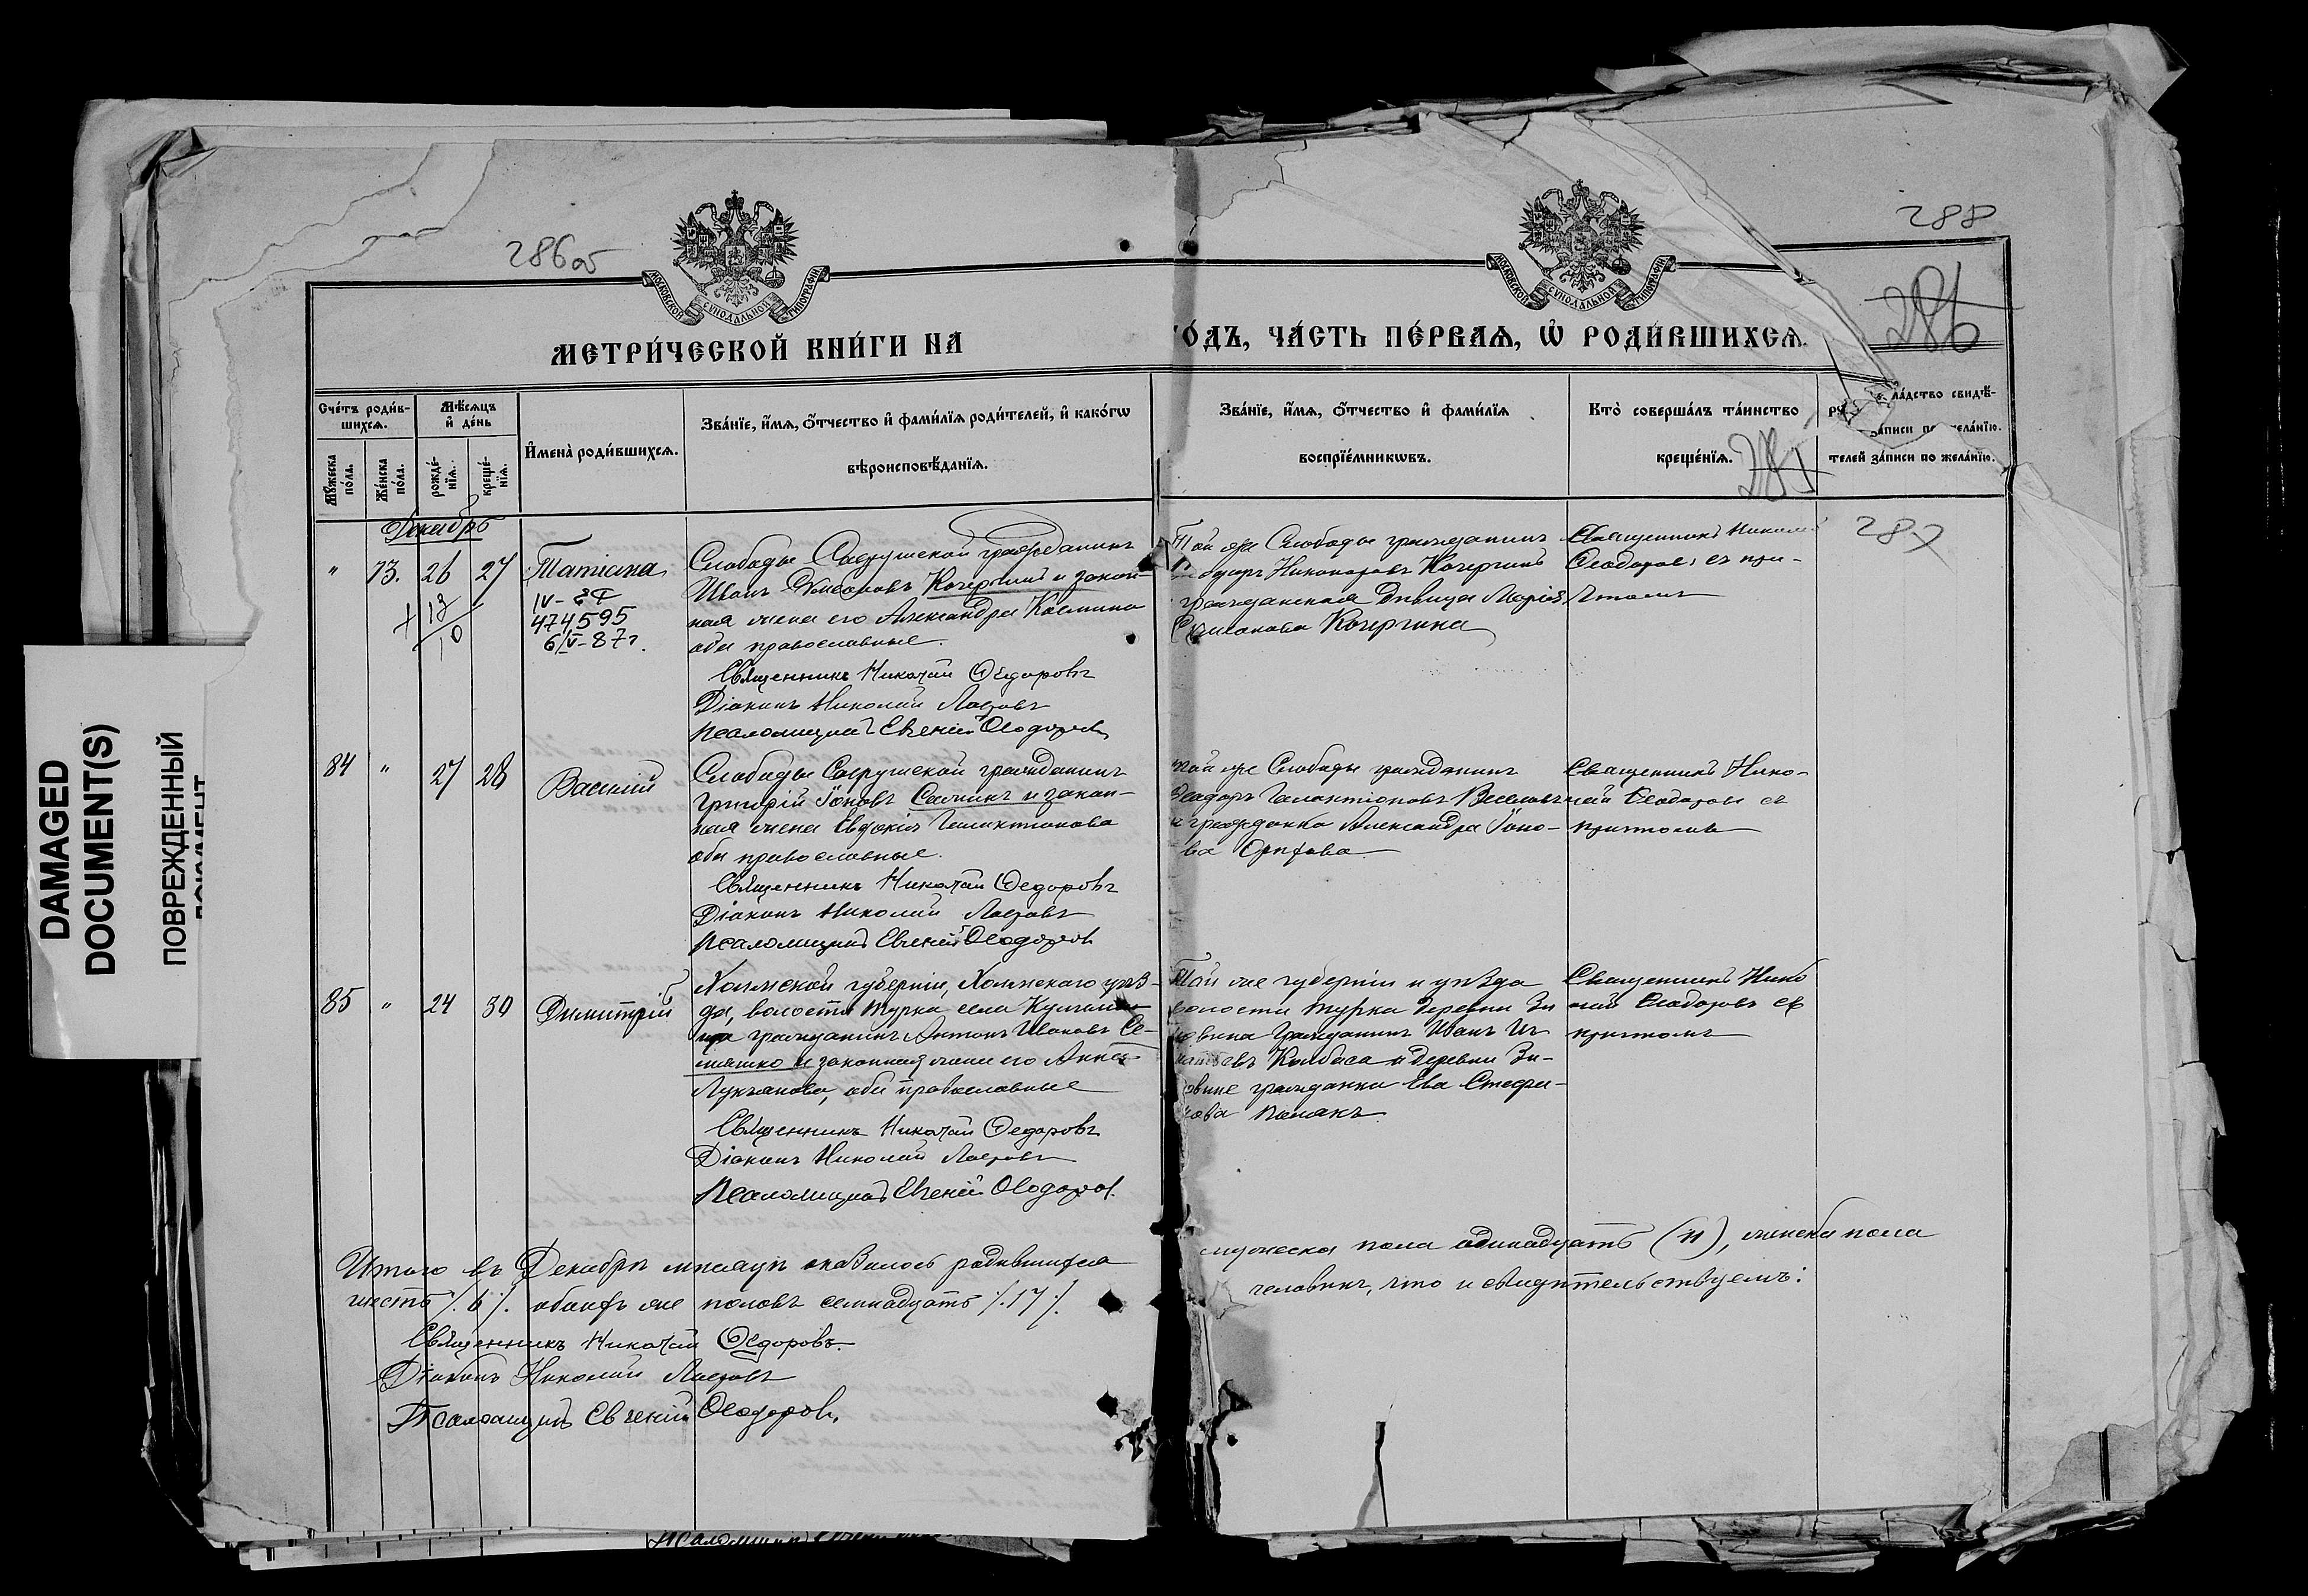 286 об
288
286
МОСКОВСКОЙ СѴНОДАЛЬНОЙ ТИПОГРАФІИ
МОСКОВСКОЙ СѴНОДАЛЬНОЙ ТИПОГРАФІИ
МЕТРИ́ЧЕСКОЙ КНИ́ГИ НА
ОДЪ, ЧА́СТЬ ПЕ́РВАѦ, Ѡ РОДИ́ВШИХСѦ.
Сче́тъ роди́в-
шихсѧ.
Мꙋ́жеска по́ла.
Же́нска по́ла.
Мѣ́сѧцъ и де́нь
рожде́-
нїѧ.
креще́-
нїѧ.
И́мена̀ роди́вшихсѧ.
Зва́нїе, и́мѧ, о́тчество и фами́лїѧ роди́телей, и како́гѡ
вѣроисповѣ́данїѧ.
Зва́нїе, и́мѧ, о́тчество и фами́лїѧ
воспрїе́мникѡвъ.
Кто̀ соверша́лъ та́инство
креще́нїѧ.
ла́дство свидѣ́-
телей за́писи по жела́нїю.
Декабрь
" 73. 26 27 Татіана
IV-
474595
6/IV-87г.
гражданинъ
Иванъ Кочергинъ и закон-
ная жена его Александра Космина
оба православные.
Священникъ Николай Ѳедоровъ
Діаконъ Николай
Псаломщикъ Евгеній Ѳеодоровъ
Той же Слободы гражданинъ
Никаноровъ Кочергинъ
гражданская дѣвица Марія
Кочергина
Священникъ Николай
Ѳеодоровъ съ при-
чтомъ
84 " 27 28 Василій
Слободы гражданинъ
Григорій Іоновъ Салминъ и закон-
ная жена Евдокія Галактіонова
оба православные.
Священникъ Николай Ѳедоровъ
Діаконъ Николай
Псаломщикъ Евгеній Ѳеодоровъ
той же Слободы гражданинъ
Ѳеодоръ Галактіоновъ
и гражданка Александра Іоно-
ва
Священникъ Нико-
лай Ѳеодоровъ съ
причтомъ
85 " 24 30 Димитрій
Холмской губерніи, Холмскаго уѣз-
да, волости Турка села
гражданинъ Антонъ Ивановъ Се-
машко и законная жена его Анна
Лукьянова, оба православные
Священникъ Николай Ѳедоровъ
Діаконъ Николай
Псаломщикъ Евгеній Ѳеодоровъ
Той же губерніи и уѣзда
волости Турка деревни
гражданинъ Иванъ
Колбаса и деревни
гражданка Ева Стефа-
нова Полакъ
Священникъ Нико
лай Ѳеодоровъ съ
причтомъ
Итого въ Декабрѣ мѣсяцѣ оказалось родившихся
мужеска пола одинадцать (11), женска пола
шесть /.6/. обоихъ же половъ семнадцать /.17/.
человѣкъ, что и свидѣтельствуемъ:
Священникъ Николай Ѳедоровъ.
Діаконъ Николай
Псаломщикъ Евгеній Ѳеодоровъ.
DAMAGED
DOCUMENT(S)
ПОВРЕЖДЕННЫЙ